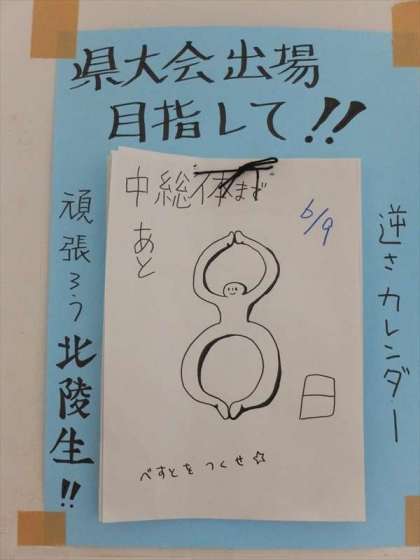 県大会出場
目指して!!
中総体まで
6/9
あと
8
日
べすとをつくせ☆
逆さカレンダー
頑張ろう北陵生!!